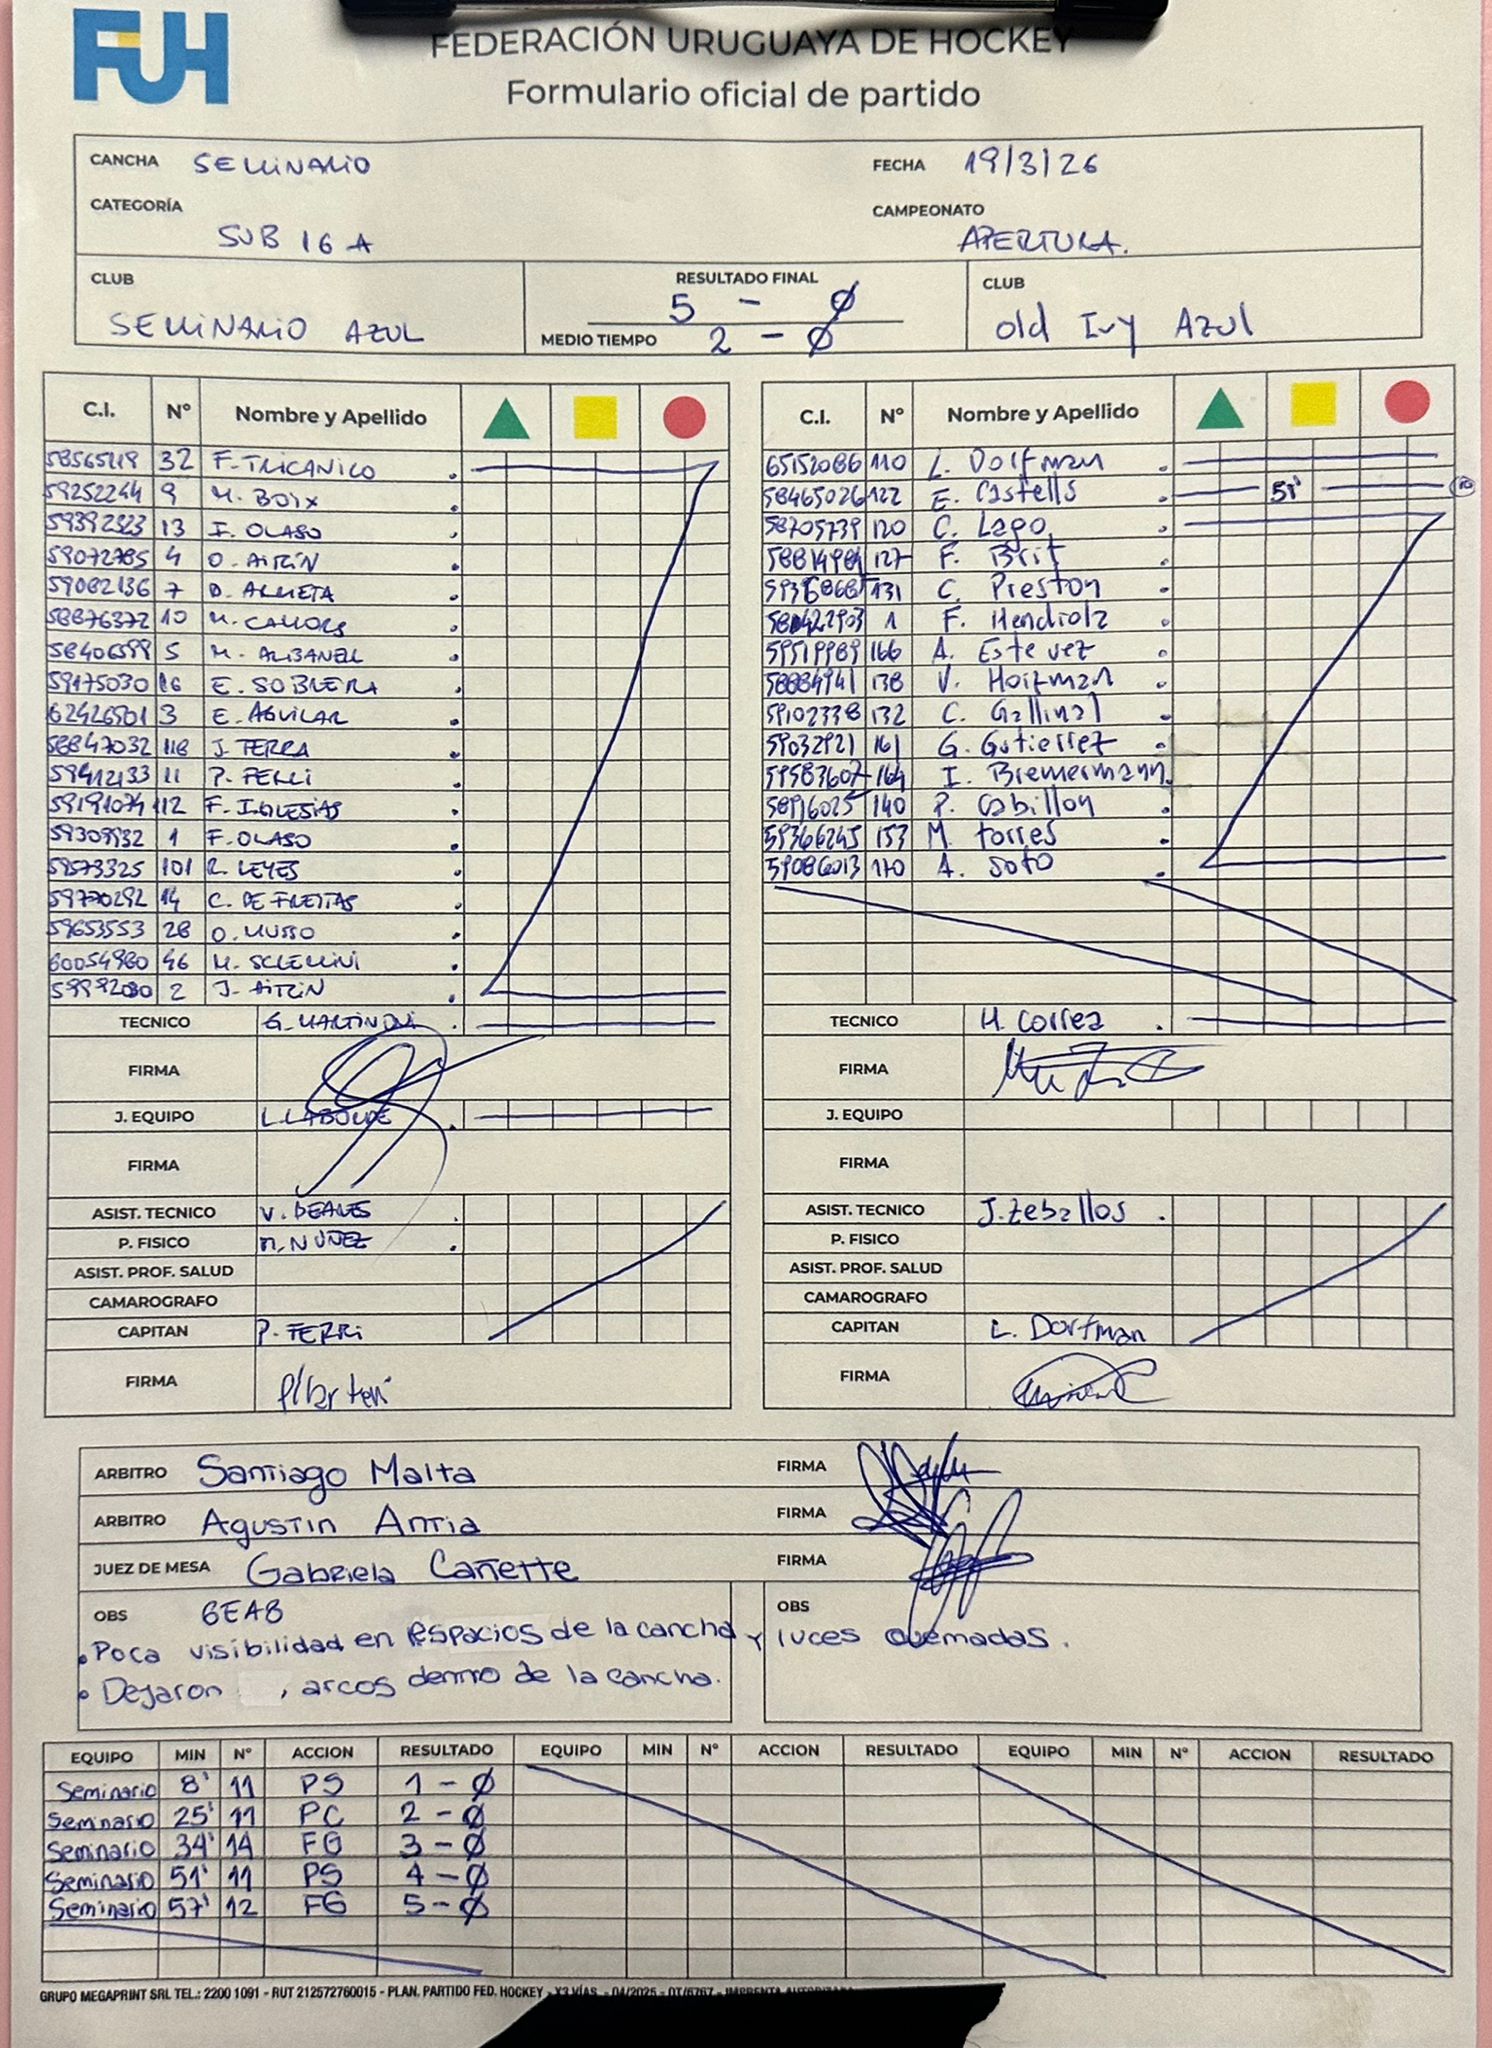 FUH
FEDERACIÓN URUGUAYA DE HOCKEY
Formulario oficial de partido
CANCHA SEMINARIO FECHA 19/3/26
CATEGORÍA SUB 16 A CAMPEONATO APERTURA.
CLUB SEMINARIO AZUL RESULTADO FINAL 5 - Ø CLUB Old Ivy AZUL
MEDIO TIEMPO 2 - Ø
C.I. Nº Nombre y Apellido C.I. Nº Nombre y Apellido
32 F. TRICANICO 65152086 110 L. Dorfman
59252244 9 M. BOIX 58465026 122 E. Castells 51'
59392323 13 I. OLASO 58705739 120 C. Lago
59072785 4 O. AITCIN 127 F. Brit
59082136 7 131 C. Preston
58876372 10 M. CAMORS 1 F. Mendiola
58406599 5 M. ALBANELL 59519989 166 A. Estevez
59175030 16 E. SOBRERA 58884941 138 V. Hoffman
62426501 3 E. AGUILAR 59102338 132 C. Gallinal
58847032 118 J. TERRA 59032921 161 G. Gutierrez
59412133 11 P. FERRI 59583607 164 I. Bremermann
59191074 112 F. IGLESIAS 58916025 140 P. Cabillon
59309932 1 F. OLASO 59366245 153 M. torres
58573325 101 R. LEYES 59086013 170 A. Soto
59770292 14 C. DE FREITAS
59653553 28 O. MUSSO
60054980 46
59992080 2 J. AITCIN
TECNICO TECNICO M. Correa
FIRMA FIRMA
J. EQUIPO L. LABORDE J. EQUIPO
FIRMA FIRMA
ASIST. TECNICO V. ASIST. TECNICO J. Zeballos
P. FISICO M. NUÑEZ P. FISICO
ASIST. PROF. SALUD ASIST. PROF. SALUD
CAMAROGRAFO CAMAROGRAFO
CAPITAN P. FERRI CAPITAN L. Dorfman
FIRMA FIRMA
ARBITRO Santiago Malta FIRMA
ARBITRO Agustin Antia FIRMA
JUEZ DE MESA Gabriela Cañette FIRMA
OBS OBS
• Poca visibilidad en espacios de la cancha y luces quemadas.
• Dejaron , arcos dentro de la cancha.
EQUIPO MIN Nº ACCION RESULTADO EQUIPO MIN Nº ACCION RESULTADO EQUIPO MIN Nº ACCION RESULTADO
Seminario 8' 11 PS 1 - Ø
Seminario 25' 11 PC 2 - Ø
Seminario 34' 14 FG 3 - Ø
Seminario 51' 11 PS 4 - Ø
Seminario 57' 12 FG 5 - Ø
GRUPO MEGAPRINT SRL TEL.: 2200 1091 - RUT 212572760015 - PLAN. PARTIDO FED. HOCKEY - X3 VÍAS - 04/2025 - OT/6767 - IMPRENTA